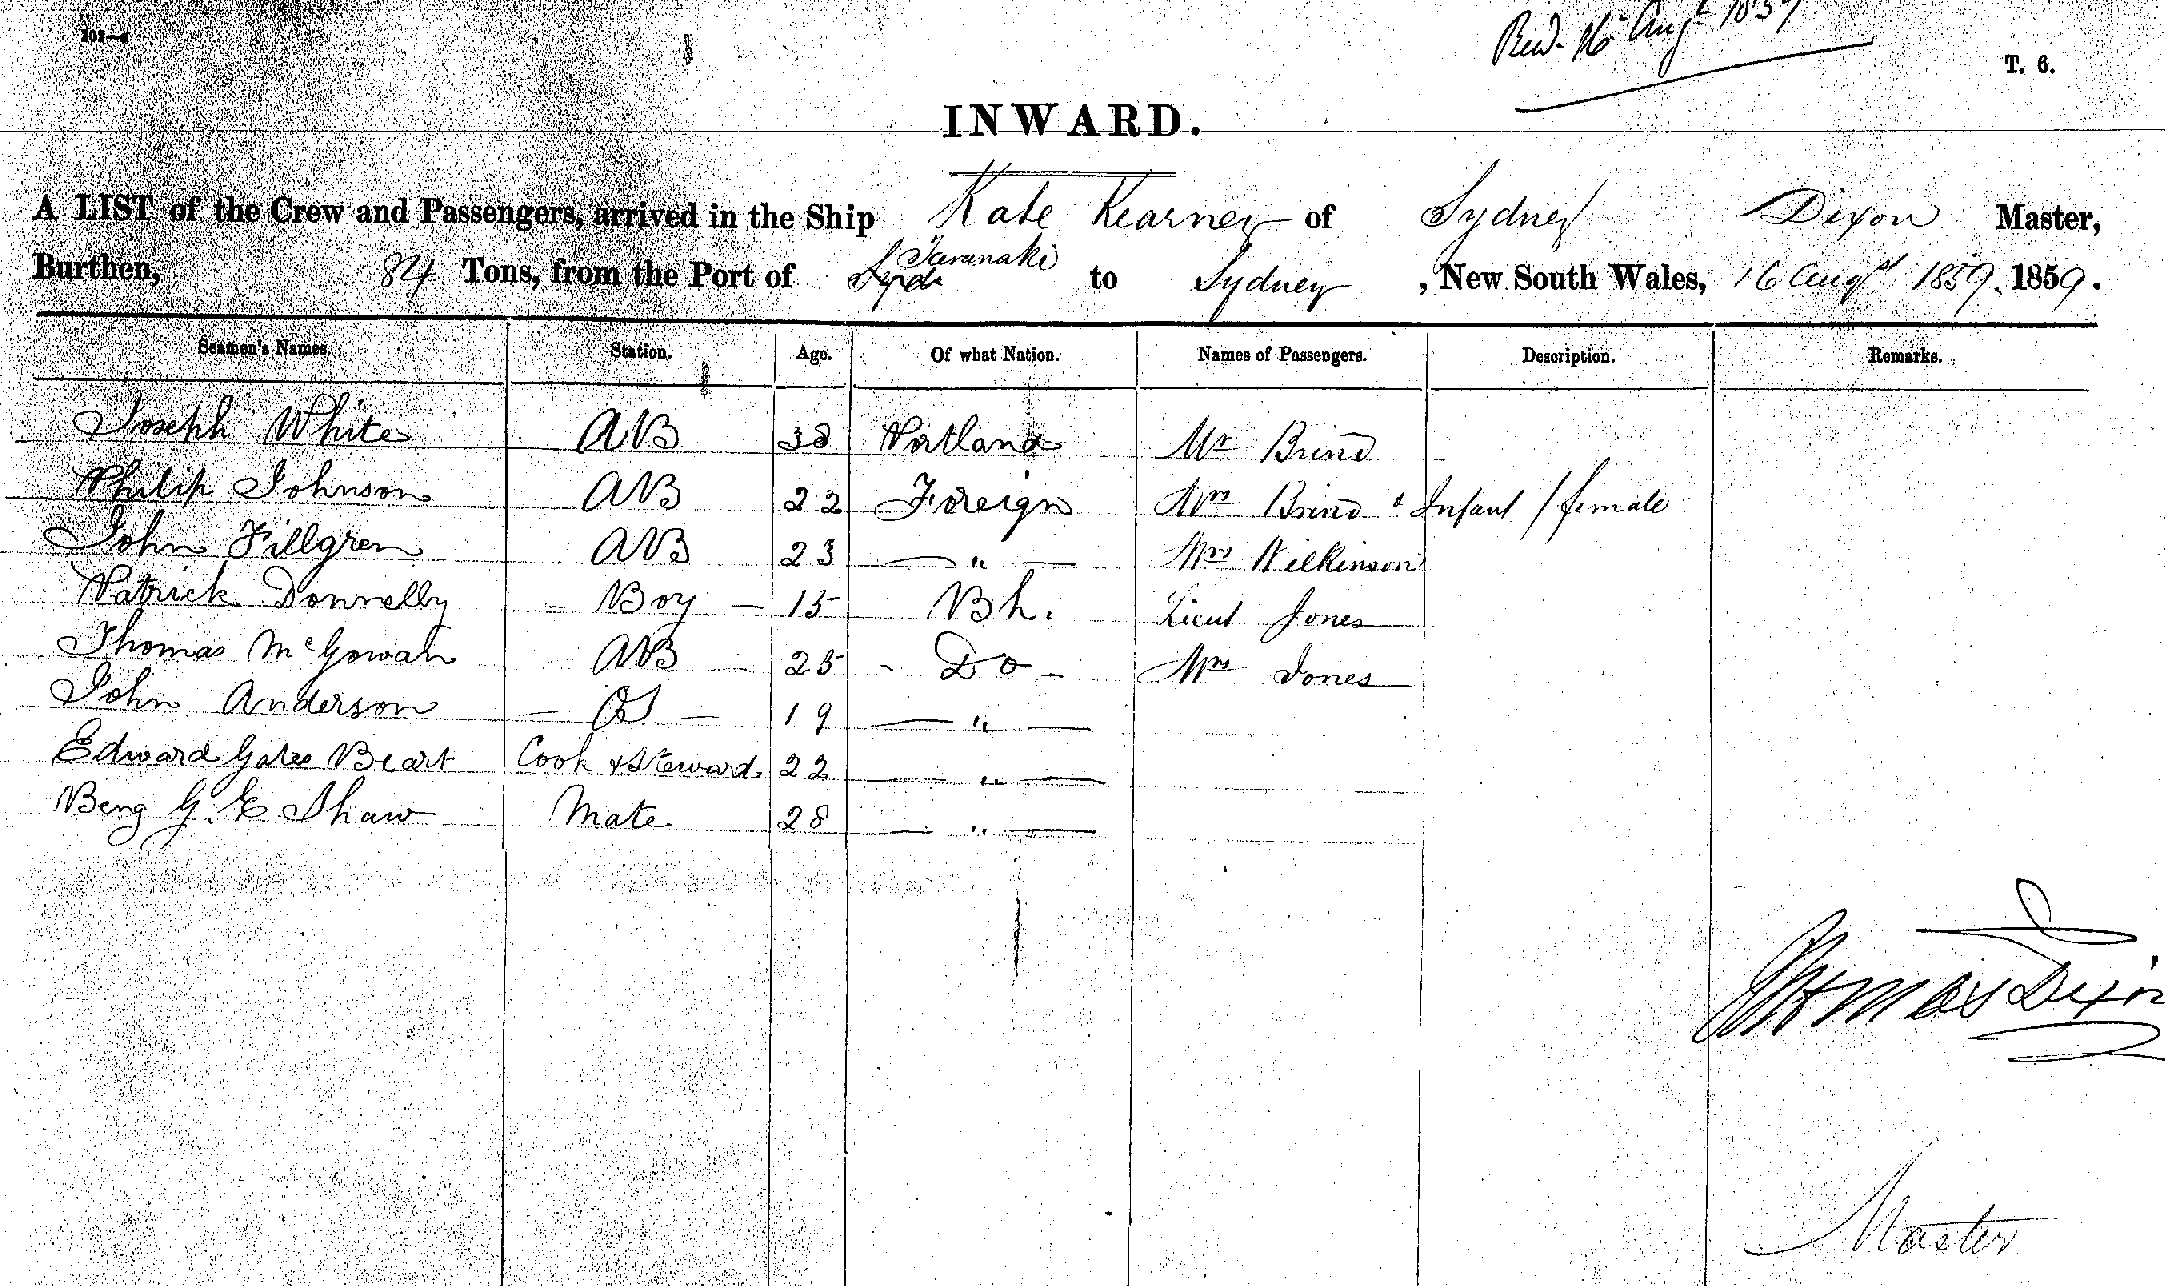 Recd. 16 Augt 1859
T. 6.
INWARD.
A LIST of the Crew and Passengers, arrived in the Ship Kate Kearney of Sydney Dixon Master,
Taranaki
Burthen, 84 Tons, from the Port of to Sydney, New South Wales, 16 Augst 1859. 1859.
Seamen's Names. Station. Age. Of what Nation. Names of Passengers. Description. Remarks.
Joseph White AB 38 Portland Mr Brind
Philip Johnson AB 22 Foreign Mrs Brind & Infant / female
John Fillgren AB 23 — " — Mrs Wilkinson
Patrick Donnelly – Boy – 15 Bh. Lieut Jones
Thomas McGowan AB – 25 - Do - Mrs Jones
John Anderson – OS – 19 — " —
Edward Gates Beart Cook & Steward. 22 — " —
Benj G. E Shaw Mate 28 — " —
Thomas Dixon
Master